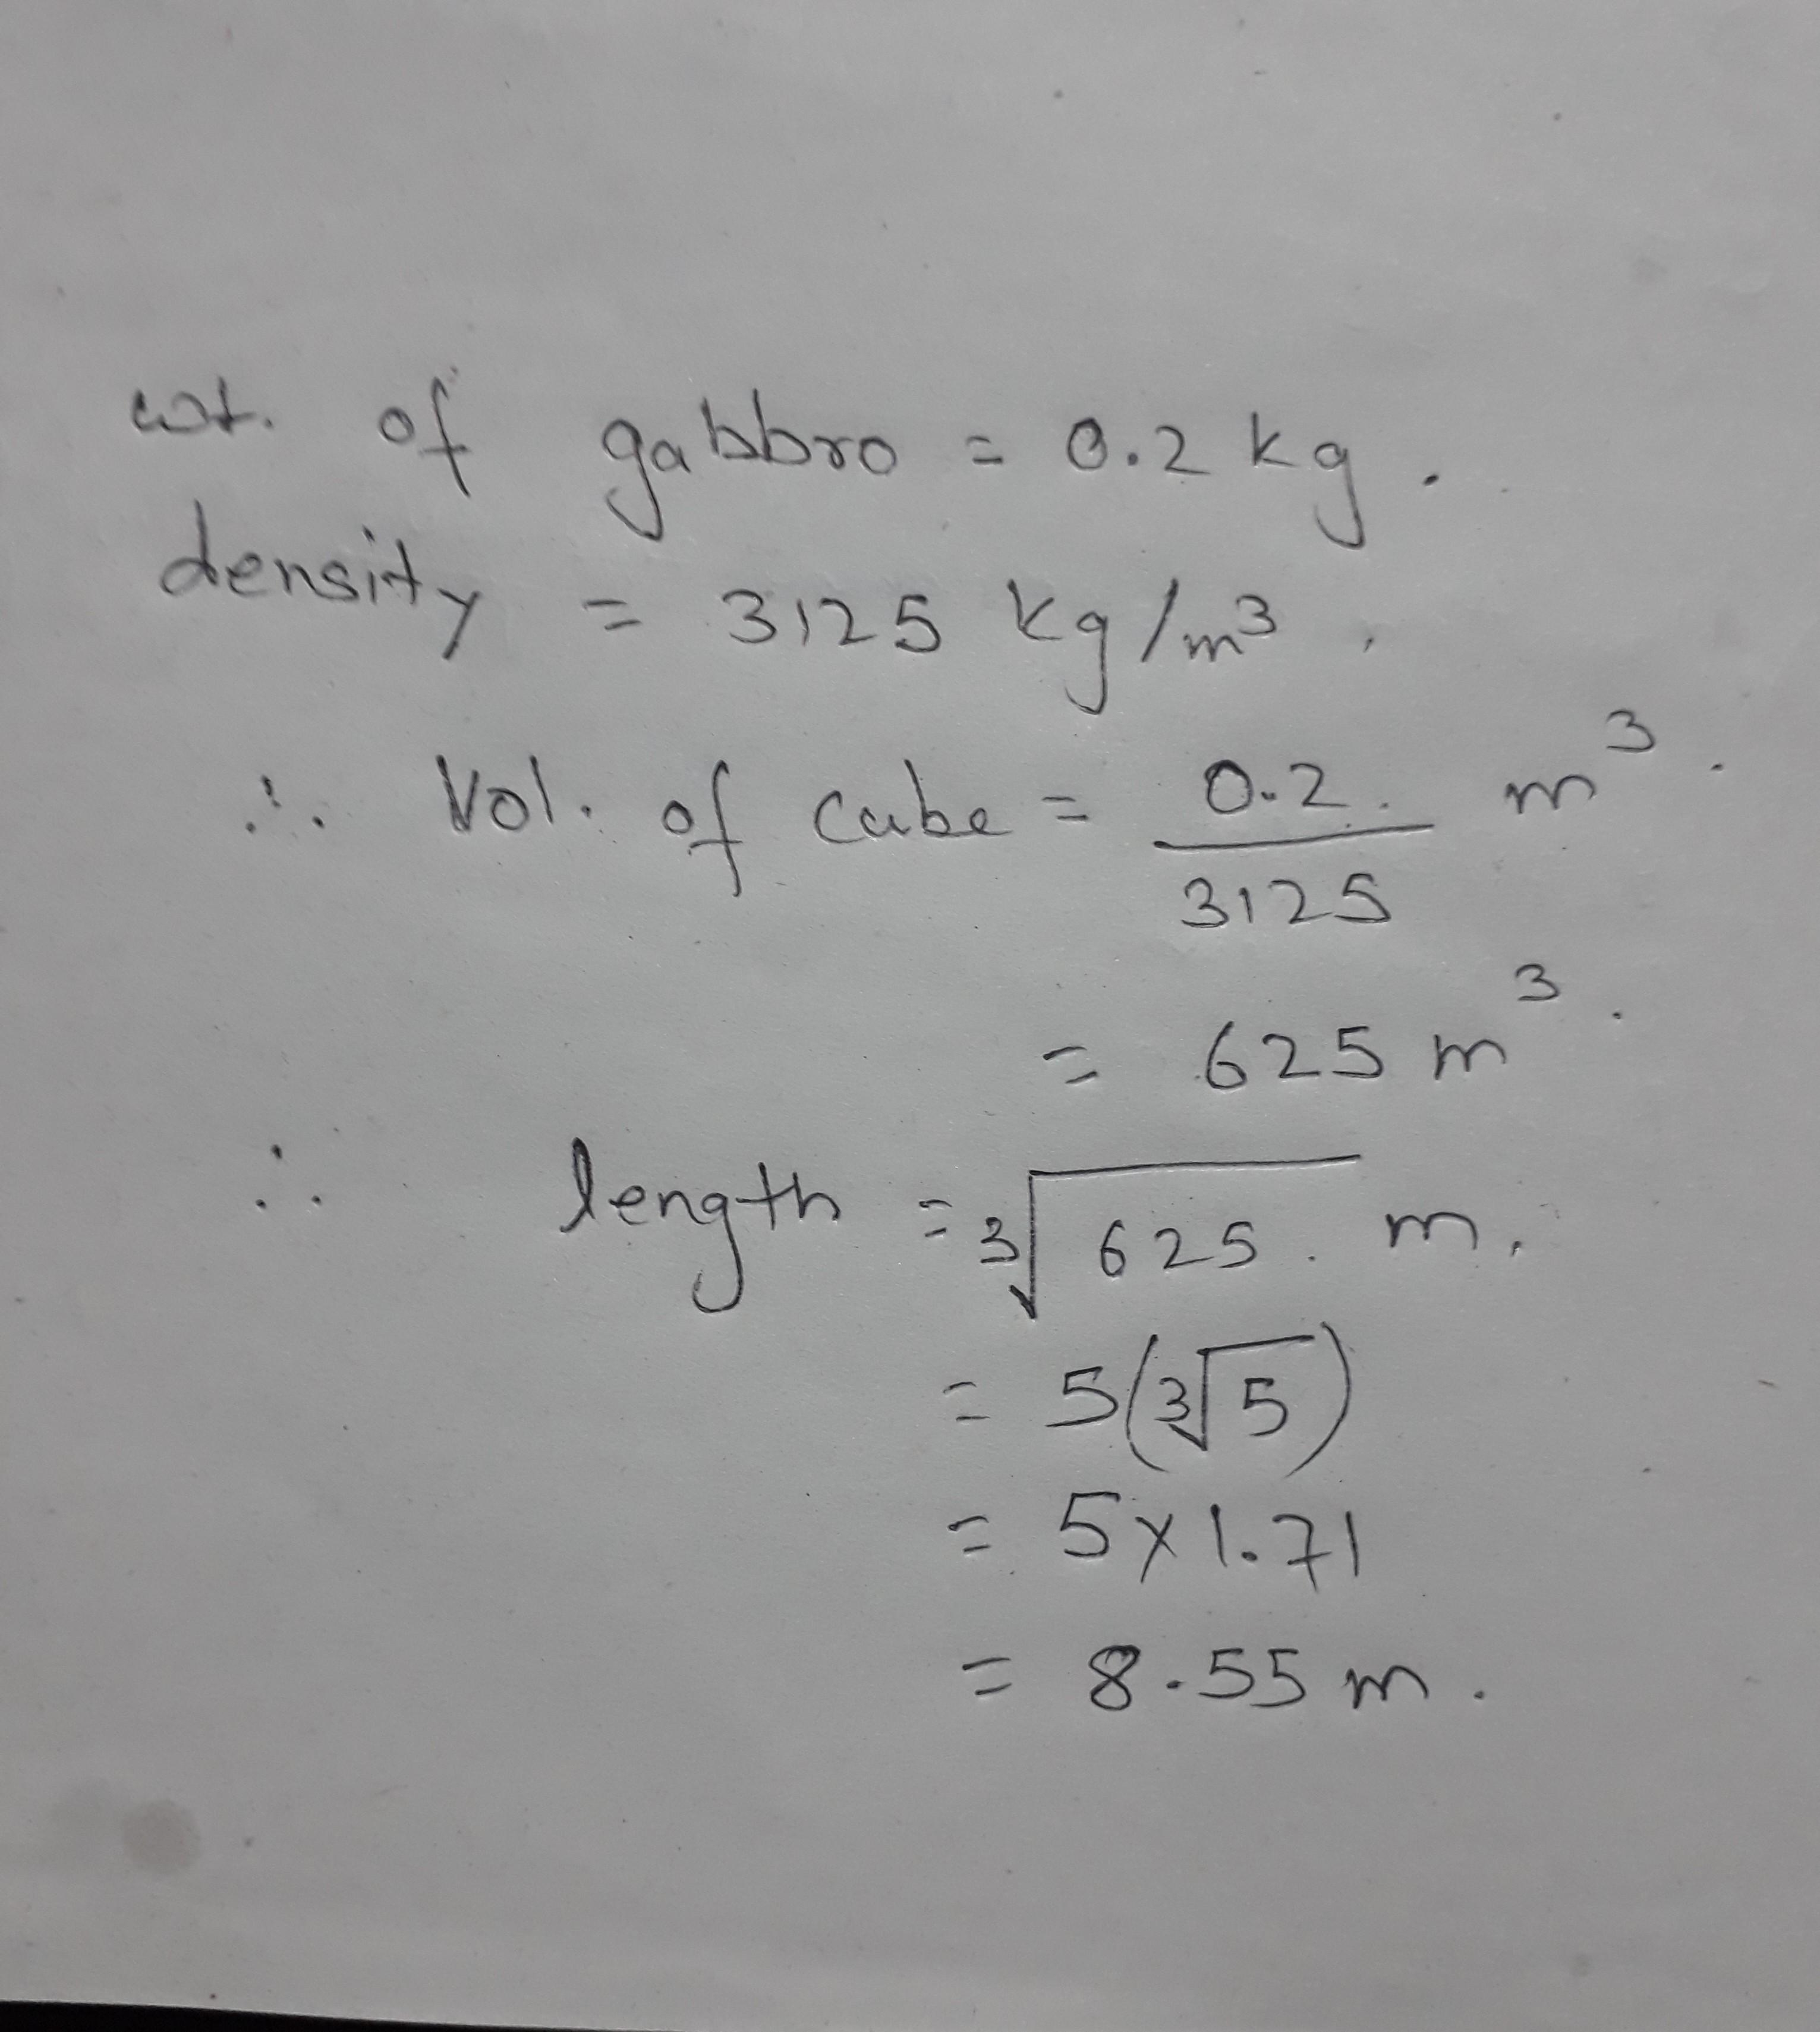 wt. of gabbro = 0.2 kg.
density = 3125 kg/m³.
∴ Vol. of cube = 0.2/3125 m³.
= 625 m³.
∴ length = ³√625. m.
= 5(³√5)
= 5×1.71
= 8.55 m.